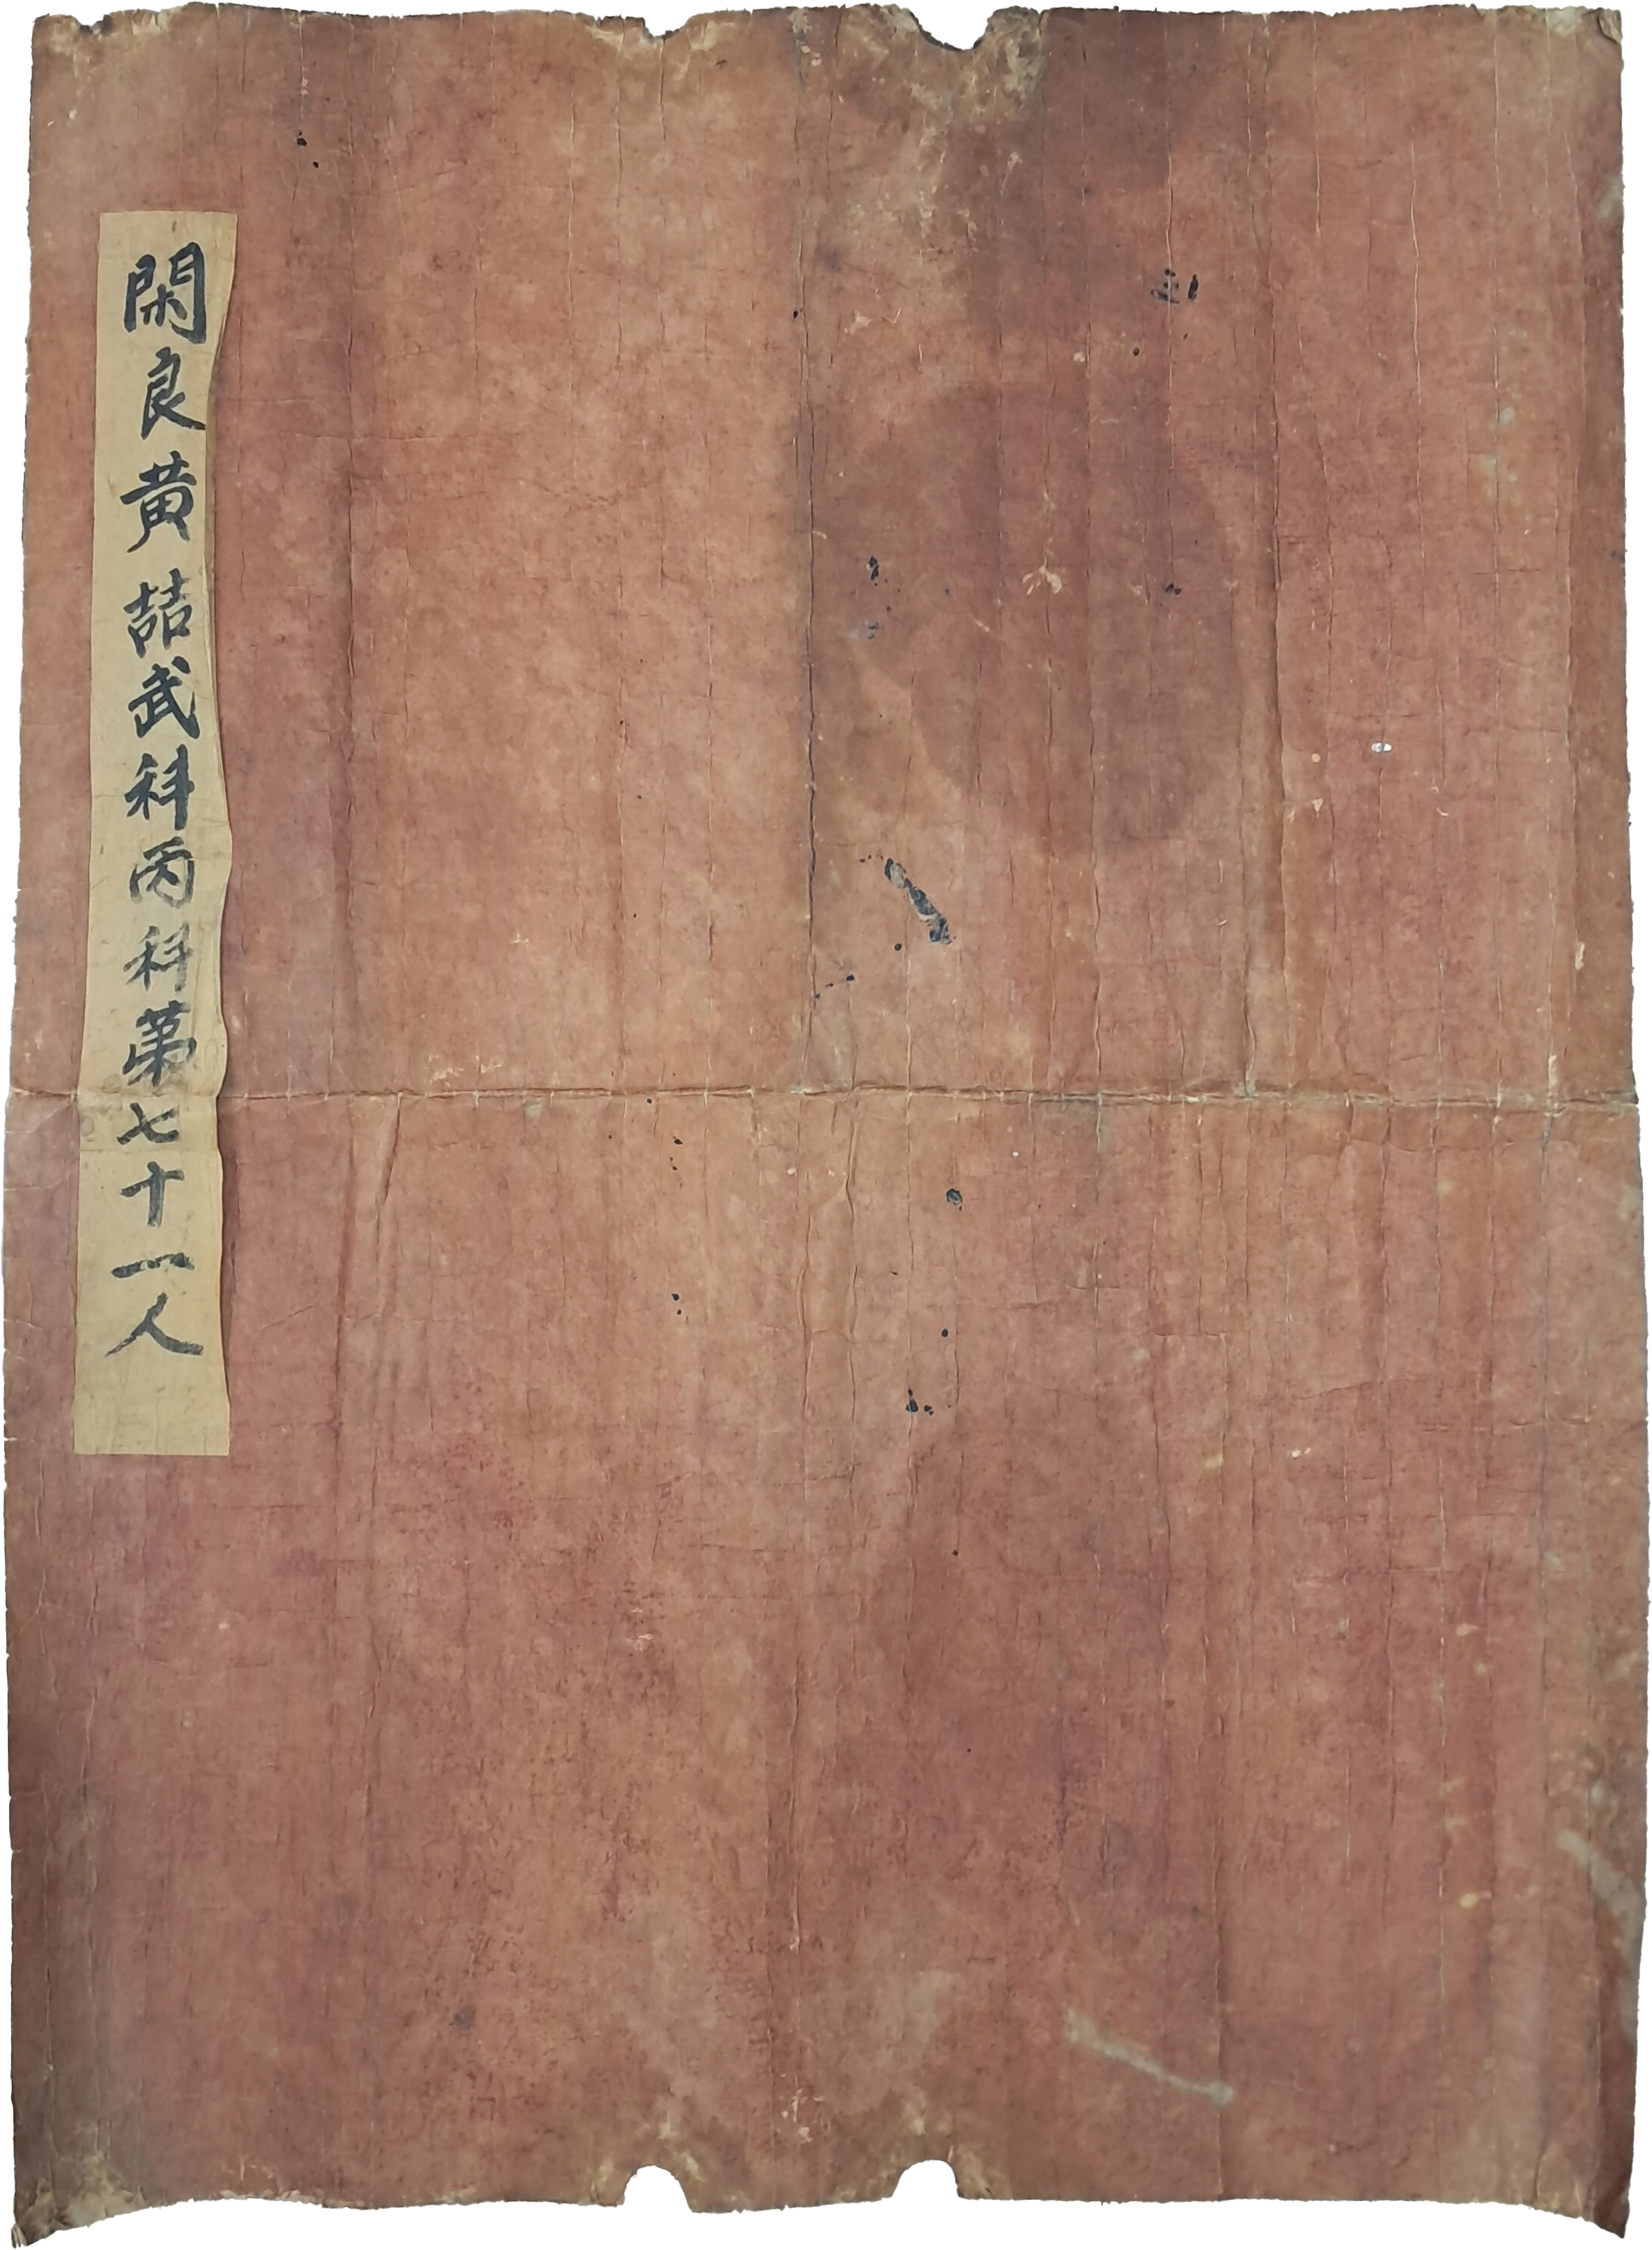 閑良黄喆武科丙科第七十一人